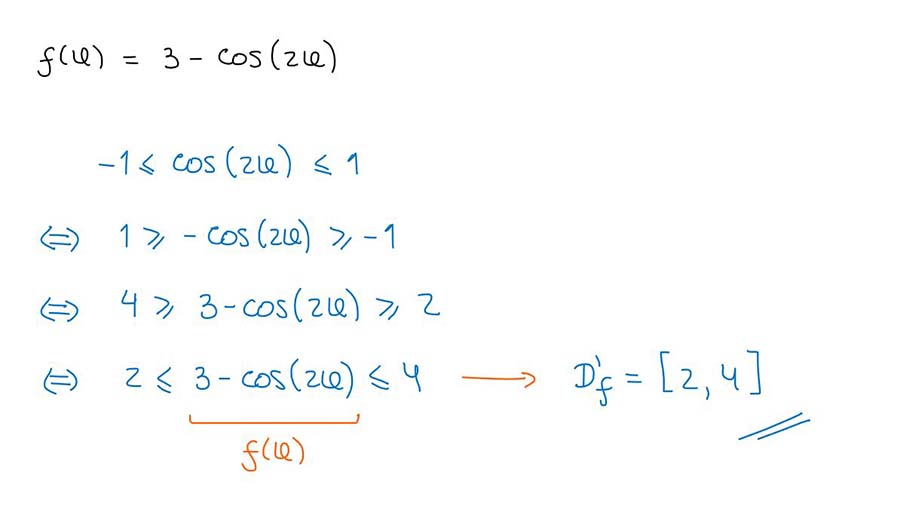 f(x) = 3 - cos(2x)
-1 ⩽ cos(2x) ⩽ 1
⇔ 1 ⩾ -cos(2x) ⩾ -1
⇔ 4 ⩾ 3 - cos(2x) ⩾ 2
⇔ 2 ⩽ 3 - cos(2x) ⩽ 4 → D'f = [2, 4]
f(x)